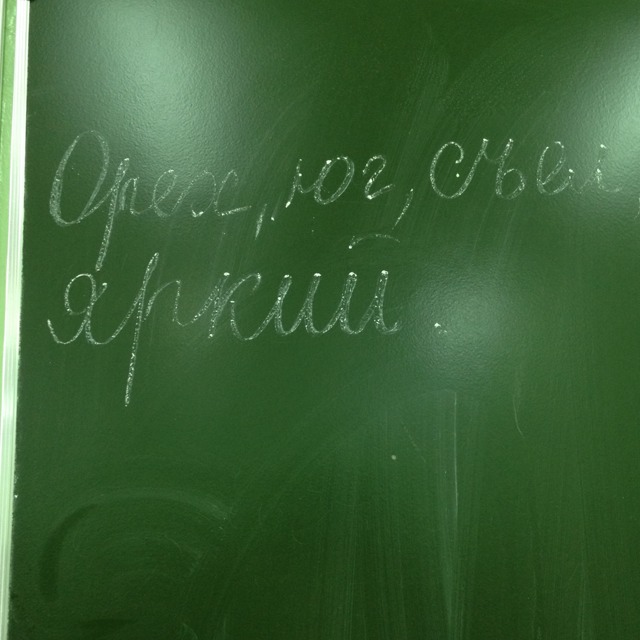 Орех, юг, съел,
яркий.